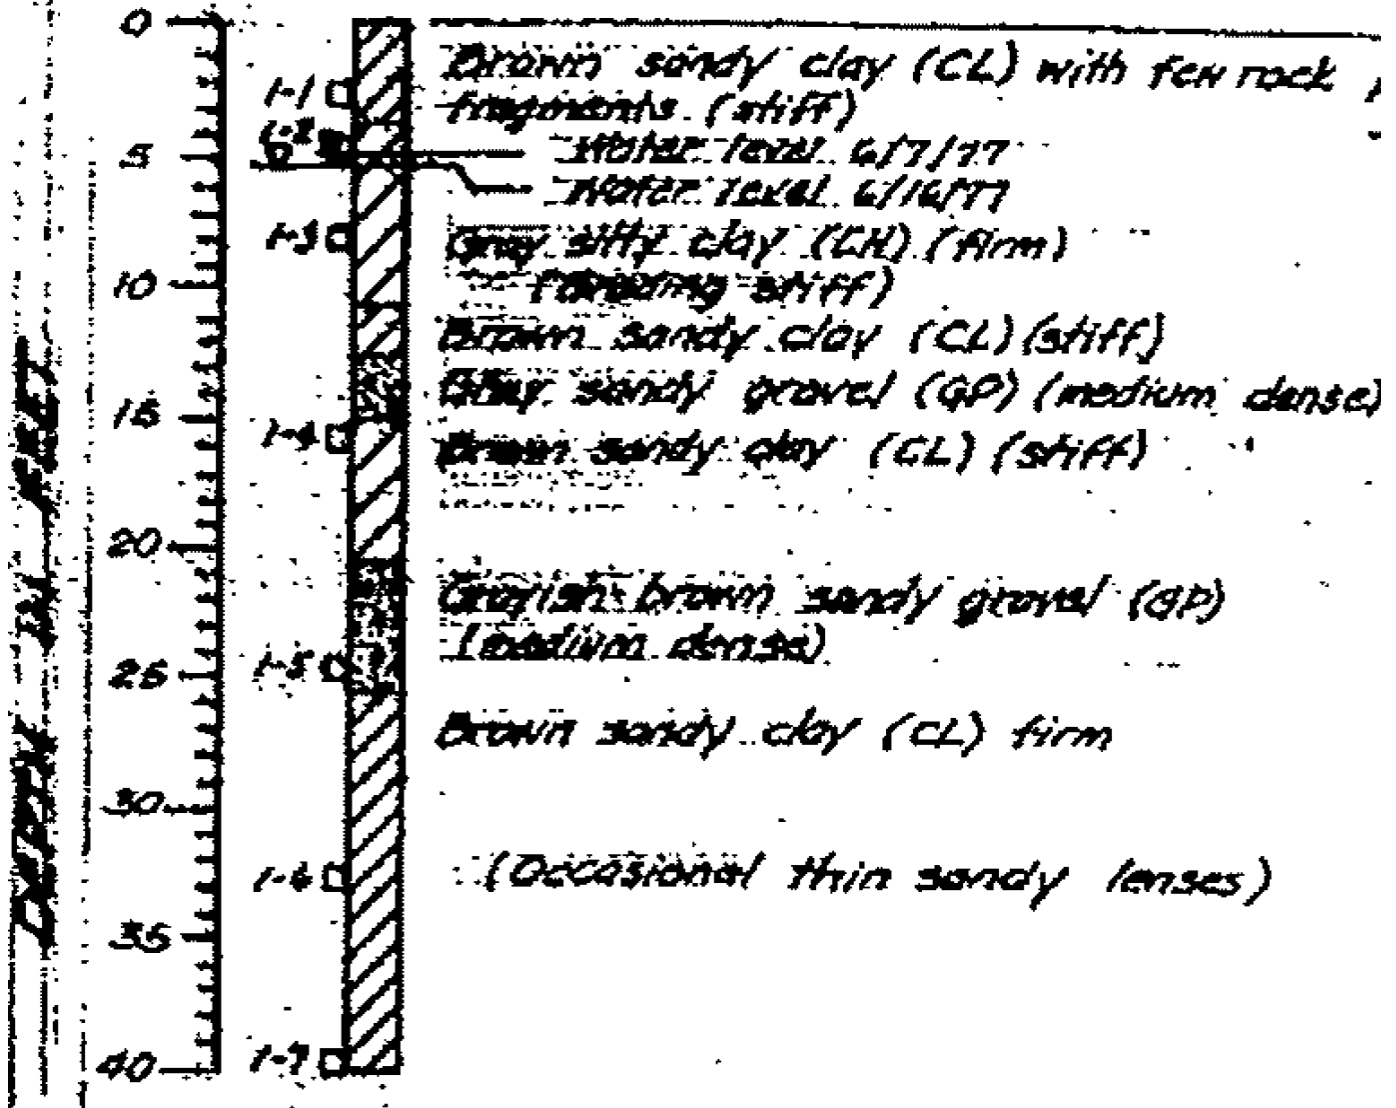 DEPTH IN FEET
0
Brown sandy clay (CL) with few rock
1-1
fragments (stiff)
1-2
5
Water level 6/7/77
Water level 6/16/77
1-3
Gray silty clay (CH) (firm)
10
(Grading stiff)
Brown sandy clay (CL) (stiff)
Gray sandy gravel (GP) (medium dense)
15
1-4
Brown sandy clay (CL) (stiff)
20
Grayish brown sandy gravel (GP)
(medium dense)
25
1-5
Brown sandy clay (CL) firm
30
1-6
(Occasional thin sandy lenses)
35
40
1-7